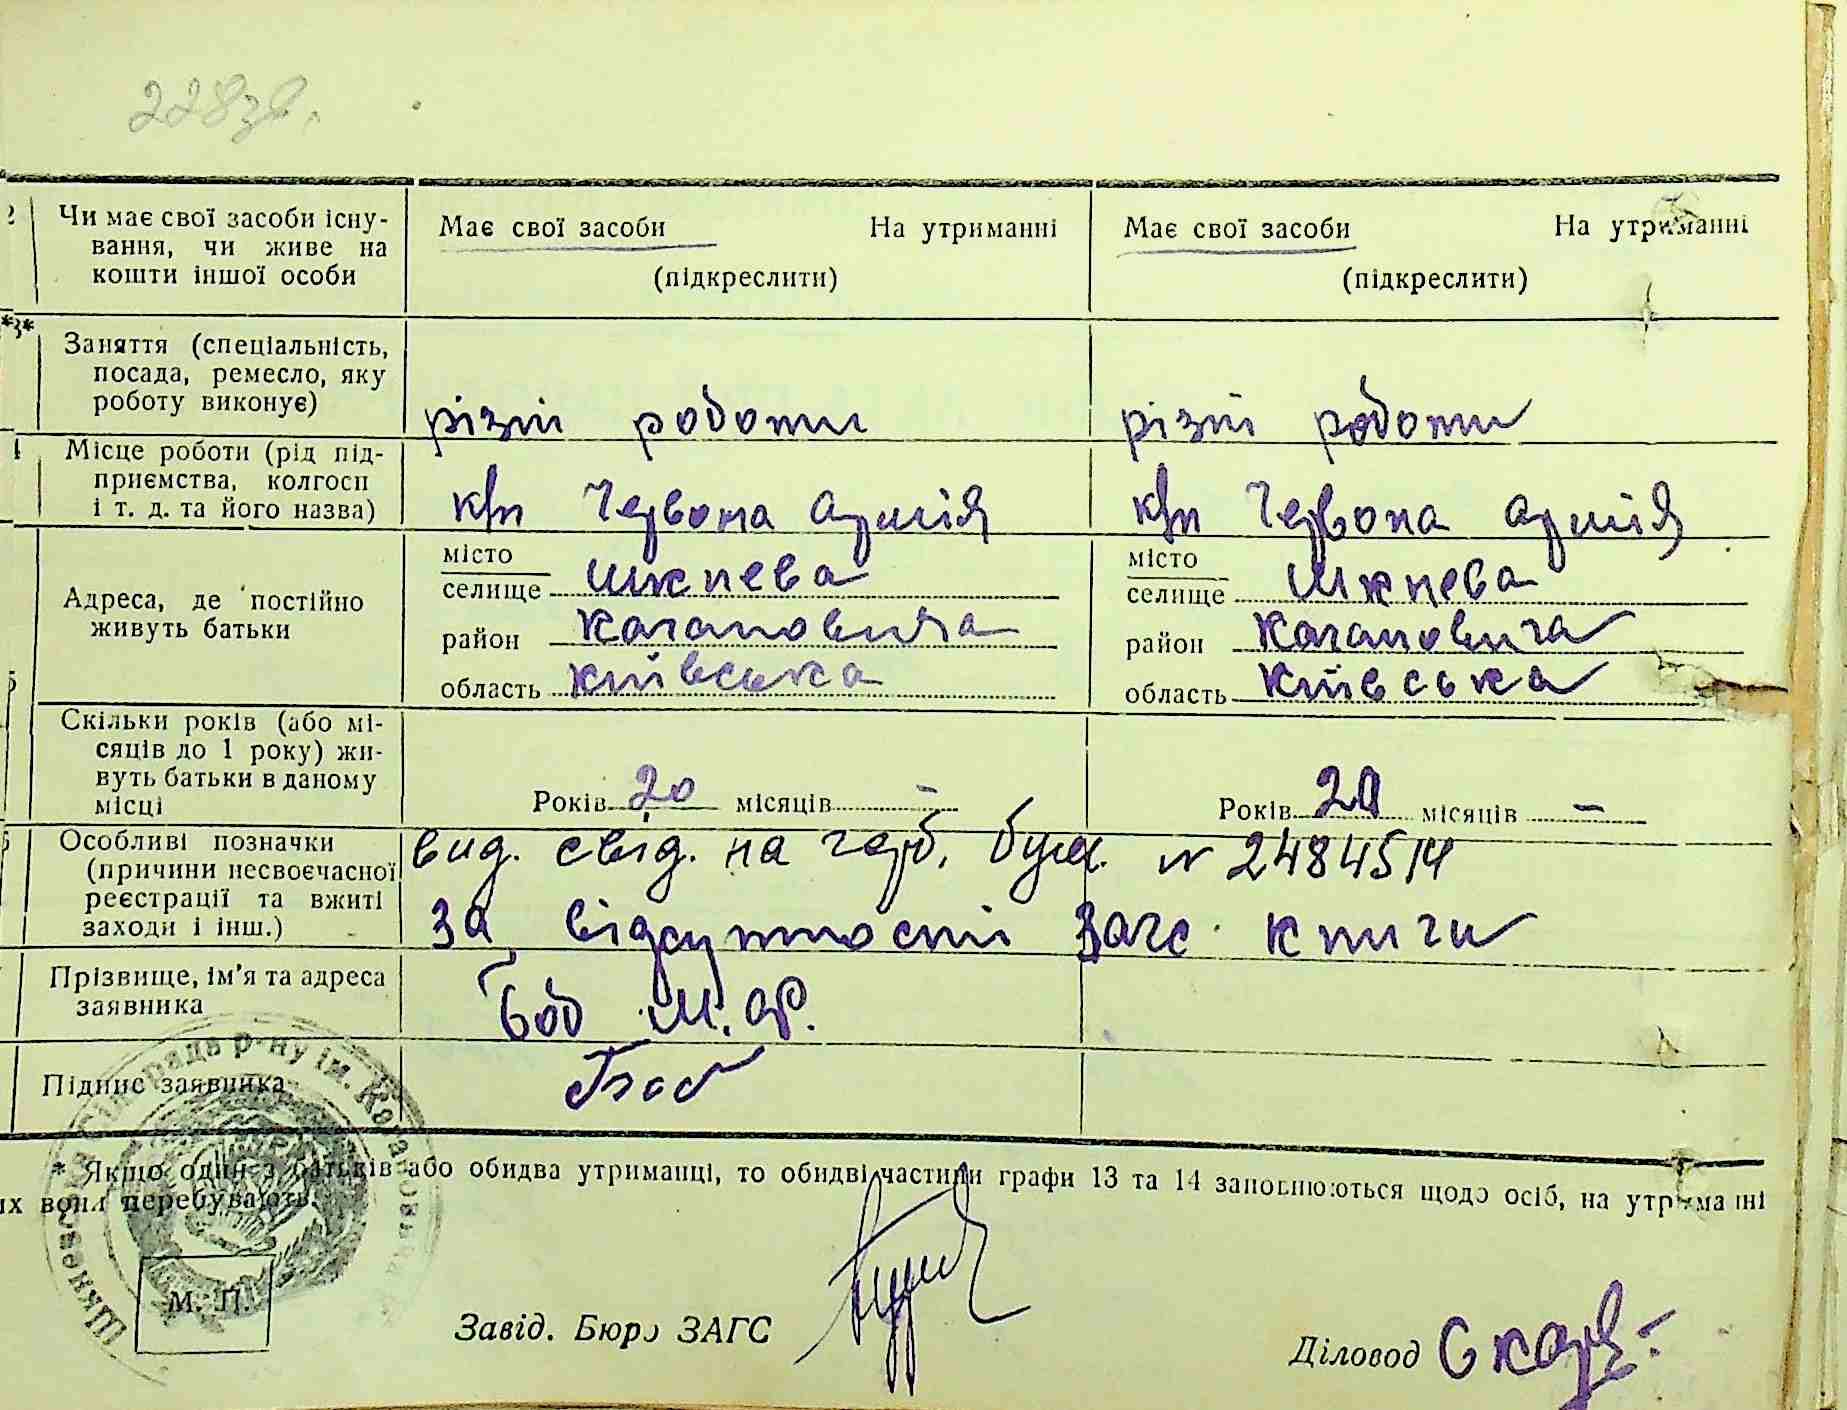 228зв.
2 Чи має свої засоби існу-
вання, чи живе на
кошти іншої особи
Має свої засоби На утриманні
(підкреслити)
Має свої засоби На утриманні
(підкреслити)
*3*
Заняття (спеціальність,
посада, ремесло, яку
роботу виконує)
різні роботи
різні роботи
Місце роботи (рід під-
приємства, колгосп
і т. д. та його назва)
к/п Червона Армія
к/п Червона Армія
Адреса, де постійно
живуть батьки
місто
селище Шкнева
район Кагановича
область Київська
місто
селище Шкнева
район Кагановича
область Київська
5
Скільки років (або мі-
сяців до 1 року) жи-
вуть батьки в даному
місці
Років 20 місяців –
Років 20 місяців –
Особливі позначки
(причини несвоєчасної
реєстрації та вжиті
заходи і інш.)
вид. свід. на герб. бум. № 2484514
за відсутності загс. книги
Прізвище, ім'я та адреса
заявника
Боб М. Ф.
Підпис заявника
Боб
* Якщо один з батьків або обидва утриманці, то обидві частини графи 13 та 14 заповнюються щодо осіб, на утриманні
их вони перебувають.
Шкневська сільрада р-ну ім. Кагановича
М. П.
Завід. Бюро ЗАГС
Діловод